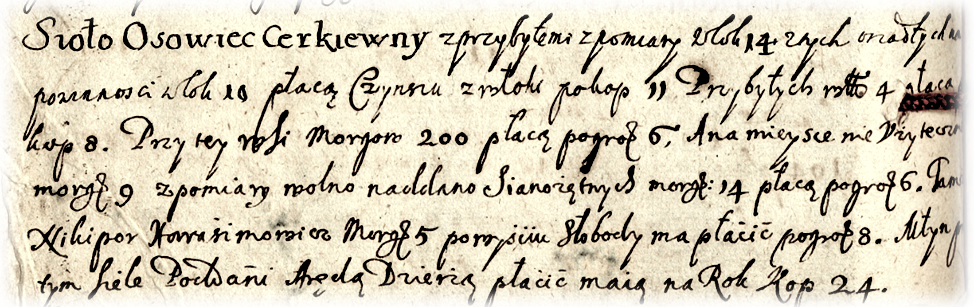 Sioło Osowiec Cerkiewny z przybyłemi z pomiary Włok 14 z tych osiadłych na
powinności włok 10 płacą Czynszu z włoki po kop 11 Przybyłych włok 4 płacą
kop 8. Przy tey wsi Morgow 200 płacą po grosz 6, A na mieysce nie Użyteczn
morg 9 z pomiary wolno naddano Sianożętnych morg: 14 płacą po grosz 6. Tam
Nikipor Harasimowicz Morg 5 po wyjściu Słobody ma płacić po grosz 8. Młyn
tym siele Poddani Arędą Dzierżą płacić maią na Rok Kop 24.